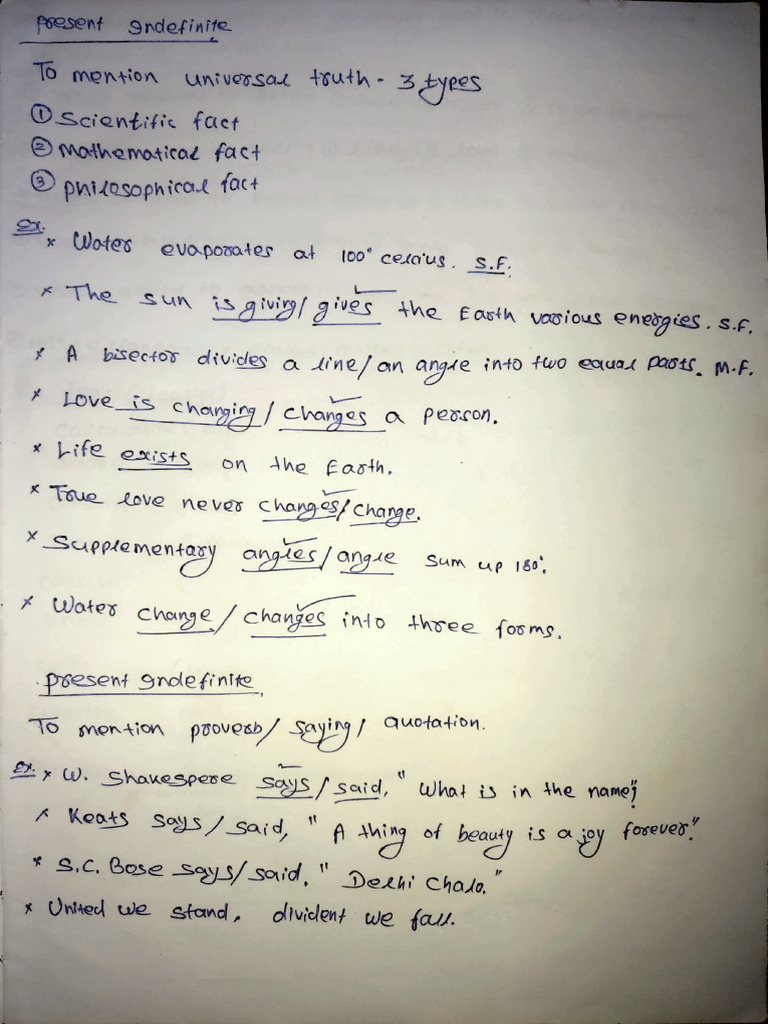 Present Indefinite
To mention universal truth - 3 types
① Scientific fact
② Mathematical fact
③ Philosophical fact
Ex.
× Water evaporates at 100° celcius. S.F.
× The sun is giving/gives ✓ the Earth various energies. S.F.
× A bisector divides a line/an angle into two equal parts. M.F.
× Love is changing/changes ✓ a person.
× Life exists on the Earth.
× True love never changes ✓/change.
× Supplementary angles ✓/angle sum up 180°.
× Water change/changes ✓ into three forms.
Present Indefinite
To mention proverb/saying/quotation.
Ex. × W. Shakespere says ✓/said, "What is in the name?"
× Keats says/said, "A thing of beauty is a joy forever."
× S.C. Bose says/said, "Delhi Chalo."
× United we stand, divident we fall.